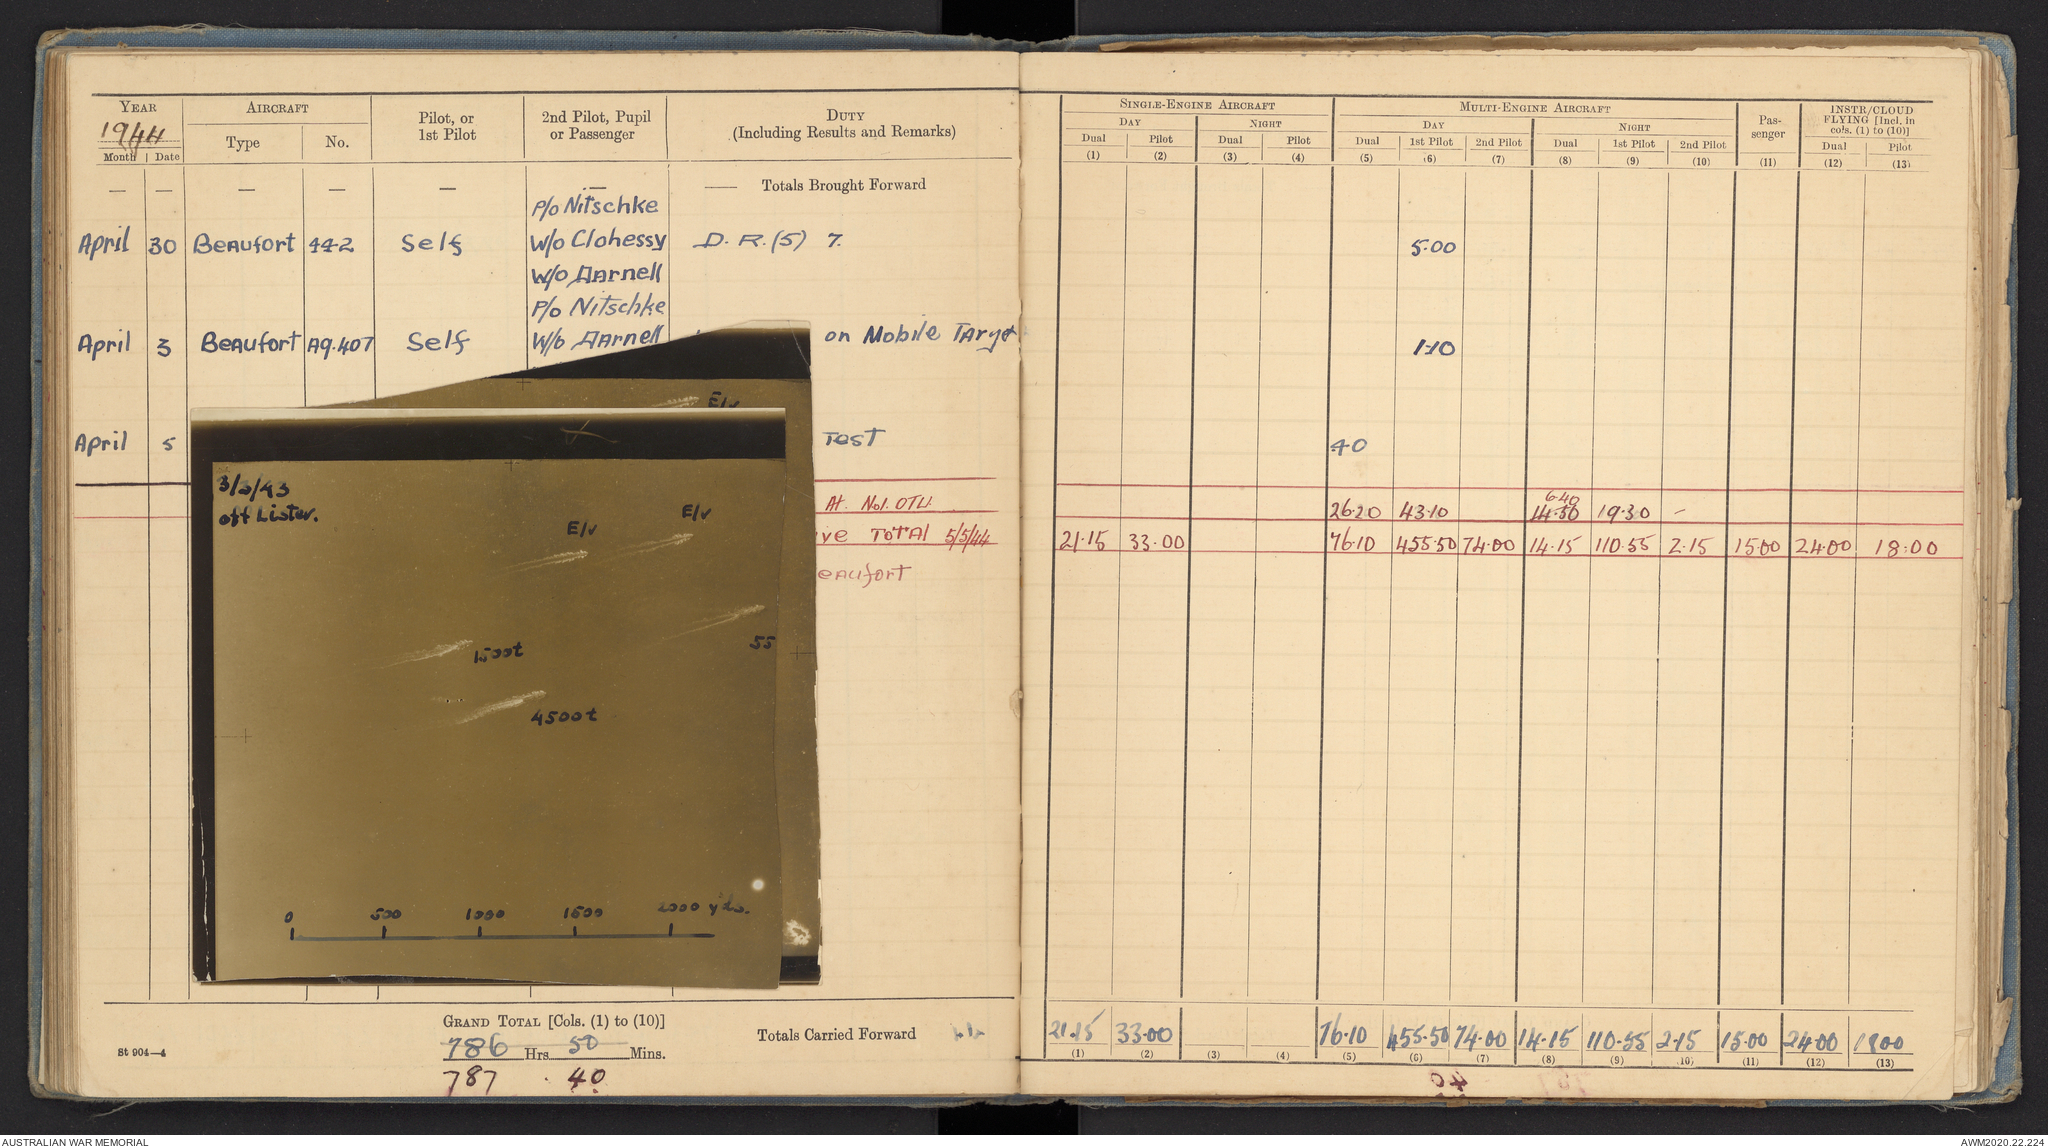 YEAR AIRCRAFT Pilot, or 1st Pilot 2nd Pilot, Pupil or Passenger DUTY (Including Results and Remarks)
1944 Type No.
Month Date
— — — — — — — Totals Brought Forward
P/o Nitschke
April 30 Beaufort 442 Self W/o Clohessy D.R.(5) 7.
W/o Darnell
P/o Nitschke
April 3 Beaufort A9.407 Self W/o Darnell on Mobile Target
April 5 Test
At. No1. OTU.
ive TOTAl 5/5/44
eaufort
E/v
3/3/43
off Lister.
E/v E/v
55
1500t
4500t
0 500 1000 1500 2000 yds.
GRAND TOTAL [Cols. (1) to (10)]
786 Hrs. 50 Mins.
787 . 40
Totals Carried Forward
St 904—4
SINGLE-ENGINE AIRCRAFT MULTI-ENGINE AIRCRAFT Pas-senger INSTR/CLOUD FLYING [Incl. in cols. (1) to (10)]
DAY NIGHT DAY NIGHT
Dual Pilot Dual Pilot Dual 1st Pilot 2nd Pilot Dual 1st Pilot 2nd Pilot Dual Pilot
(1) (2) (3) (4) (5) (6) (7) (8) (9) (10) (11) (12) (13)
5.00
1.10
40
6.40
26.20 43.10 14.50 19.30 -
21.15 33.00 76.10 455.50 74.00 14.15 110.55 2.15 15.00 24.00 18.00
21.15 33.00 76.10 455.50 74.00 14.15 110.55 2.15 15.00 24.00 18.00
(1) (2) (3) (4) (5) (6) (7) (8) (9) (10) (11) (12) (13)
40
AUSTRALIAN WAR MEMORIAL AWM2020.22.224